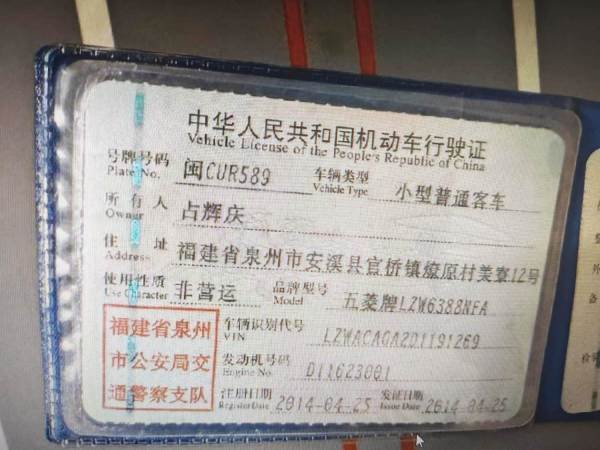 中华人民共和国机动车行驶证
Vehicle License of the People's Republic of China
号牌号码 闽CUR589 车辆类型 小型普通客车
Plate No. Vehicle Type
所有人 占辉庆
Owner
住址 福建省泉州市安溪县官桥镇燎原村美寮12号
Address
使用性质 非营运 品牌型号 五菱牌LZW6388NFA
Use Character Model
福建省泉州
市公安局交
通警察支队
车辆识别代号 LZWACAGA201191269
VIN
发动机号码 D11623001
Engine No.
注册日期 2014-04-25 发证日期 2014-04-25
Register Date Issue Date